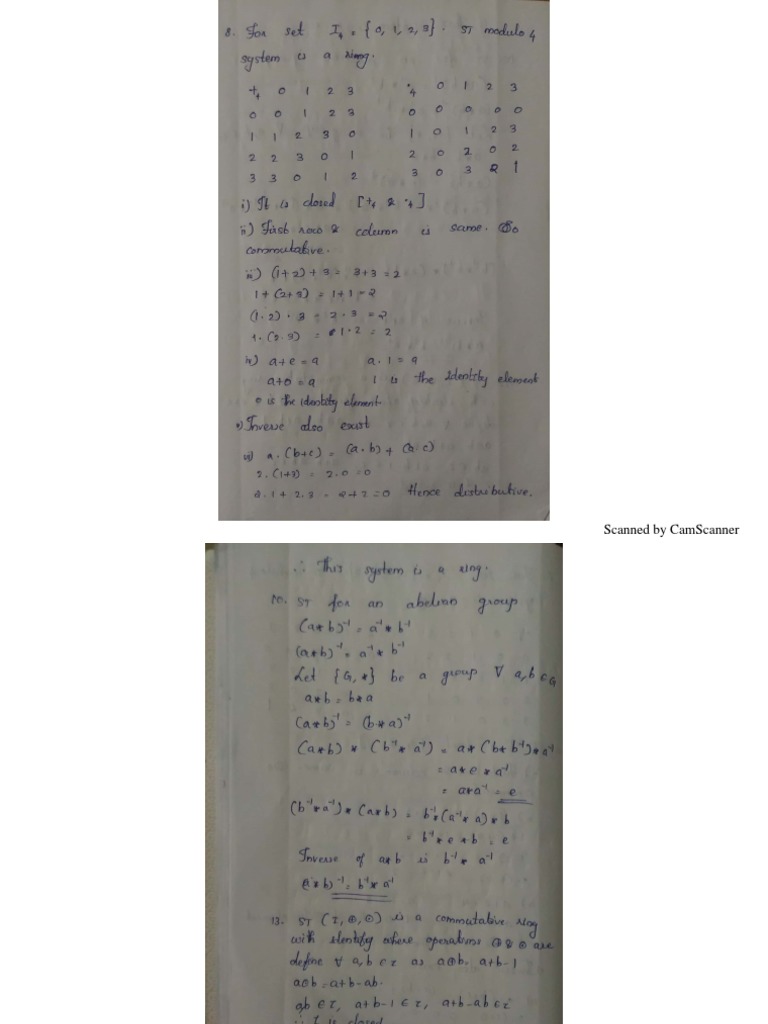 8. For set I₄ = {0, 1, 2, 3}. ST modulo 4
system is a ring.
+₄ 0 1 2 3 ·₄ 0 1 2 3
0 0 1 2 3 0 0 0 0 0
1 1 2 3 0 1 0 1 2 3
2 2 3 0 1 2 0 2 0 2
3 3 0 1 2 3 0 3 2 1
i) It is closed [+₄ & ·₄]
ii) First row & column is same. So
commutative.
iii) (1+2)+3 = 3+3 = 2
1+(2+3) = 1+1 = 2
(1·2)·3 = 2·3 = 2
1·(2·3) = 1·2 = 2
iv) a+e = a a·1 = a
a+0 = a 1 is the Identity element
0 is the identity element.
v) Inverse also exist
vi) a·(b+c) = (a·b) + (a·c)
2·(1+3) = 2·0 = 0
2·1 + 2·3 = 2+2 = 0 Hence distributive.
Scanned by CamScanner
∴ This system is a ring.
10. ST for an abelian group
(a*b)⁻¹ = a⁻¹ * b⁻¹
(a*b)⁻¹ = a⁻¹ * b⁻¹
Let {G, *} be a group ∀ a, b ∈ G
a*b = b*a
(a*b)⁻¹ = (b*a)⁻¹
(a*b) * (b⁻¹ * a⁻¹) = a*(b*b⁻¹)*a⁻¹
= a*e*a⁻¹
= a*a⁻¹ = e
(b⁻¹*a⁻¹)*(a*b) = b⁻¹*(a⁻¹*a)*b
= b⁻¹*e*b = e
Inverse of a*b is b⁻¹ * a⁻¹
(a*b)⁻¹ = b⁻¹*a⁻¹
13. ST (z, ⊕, ⊙) is a commutative ring
with identity where operations ⊕ & ⊙ are
define ∀ a, b ∈ z as a⊕b = a+b-1
a⊙b = a+b-ab.
ab ∈ z, a+b-1 ∈ z, a+b-ab ∈ z
∴ I is closed